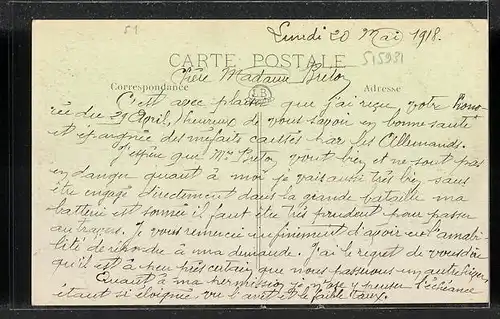 51
Lundi 20 Mai 1918.
515981
CARTE POSTALE
Chère Madame Breton
Correspondance
LB
Adresse
C'est avec plaisir que j'ai reçu votre hono-
rée du 29 April, heureux de vous savoir en bonne santé
et épargnée des méfaits causés par les Allemands.
J'espère que Mr Breton vont bien et ne sont pas
en danger quant à moi je vais aussi très bien sans
être engagé directement dans la grande bataille ma
batterie est sonnée il faut être très prudent pour passer
au travers. Je vous remercie infiniment d'avoir eu l'amabi-
lité de répondre à ma demande. J'ai le regret de vous dire
qu'il est à peu près certain que nous passerons un autre hiver
Quant à ma permission je n'ose y penser l'échéance
étant si éloignée vu l'arrêt et le faible taux.